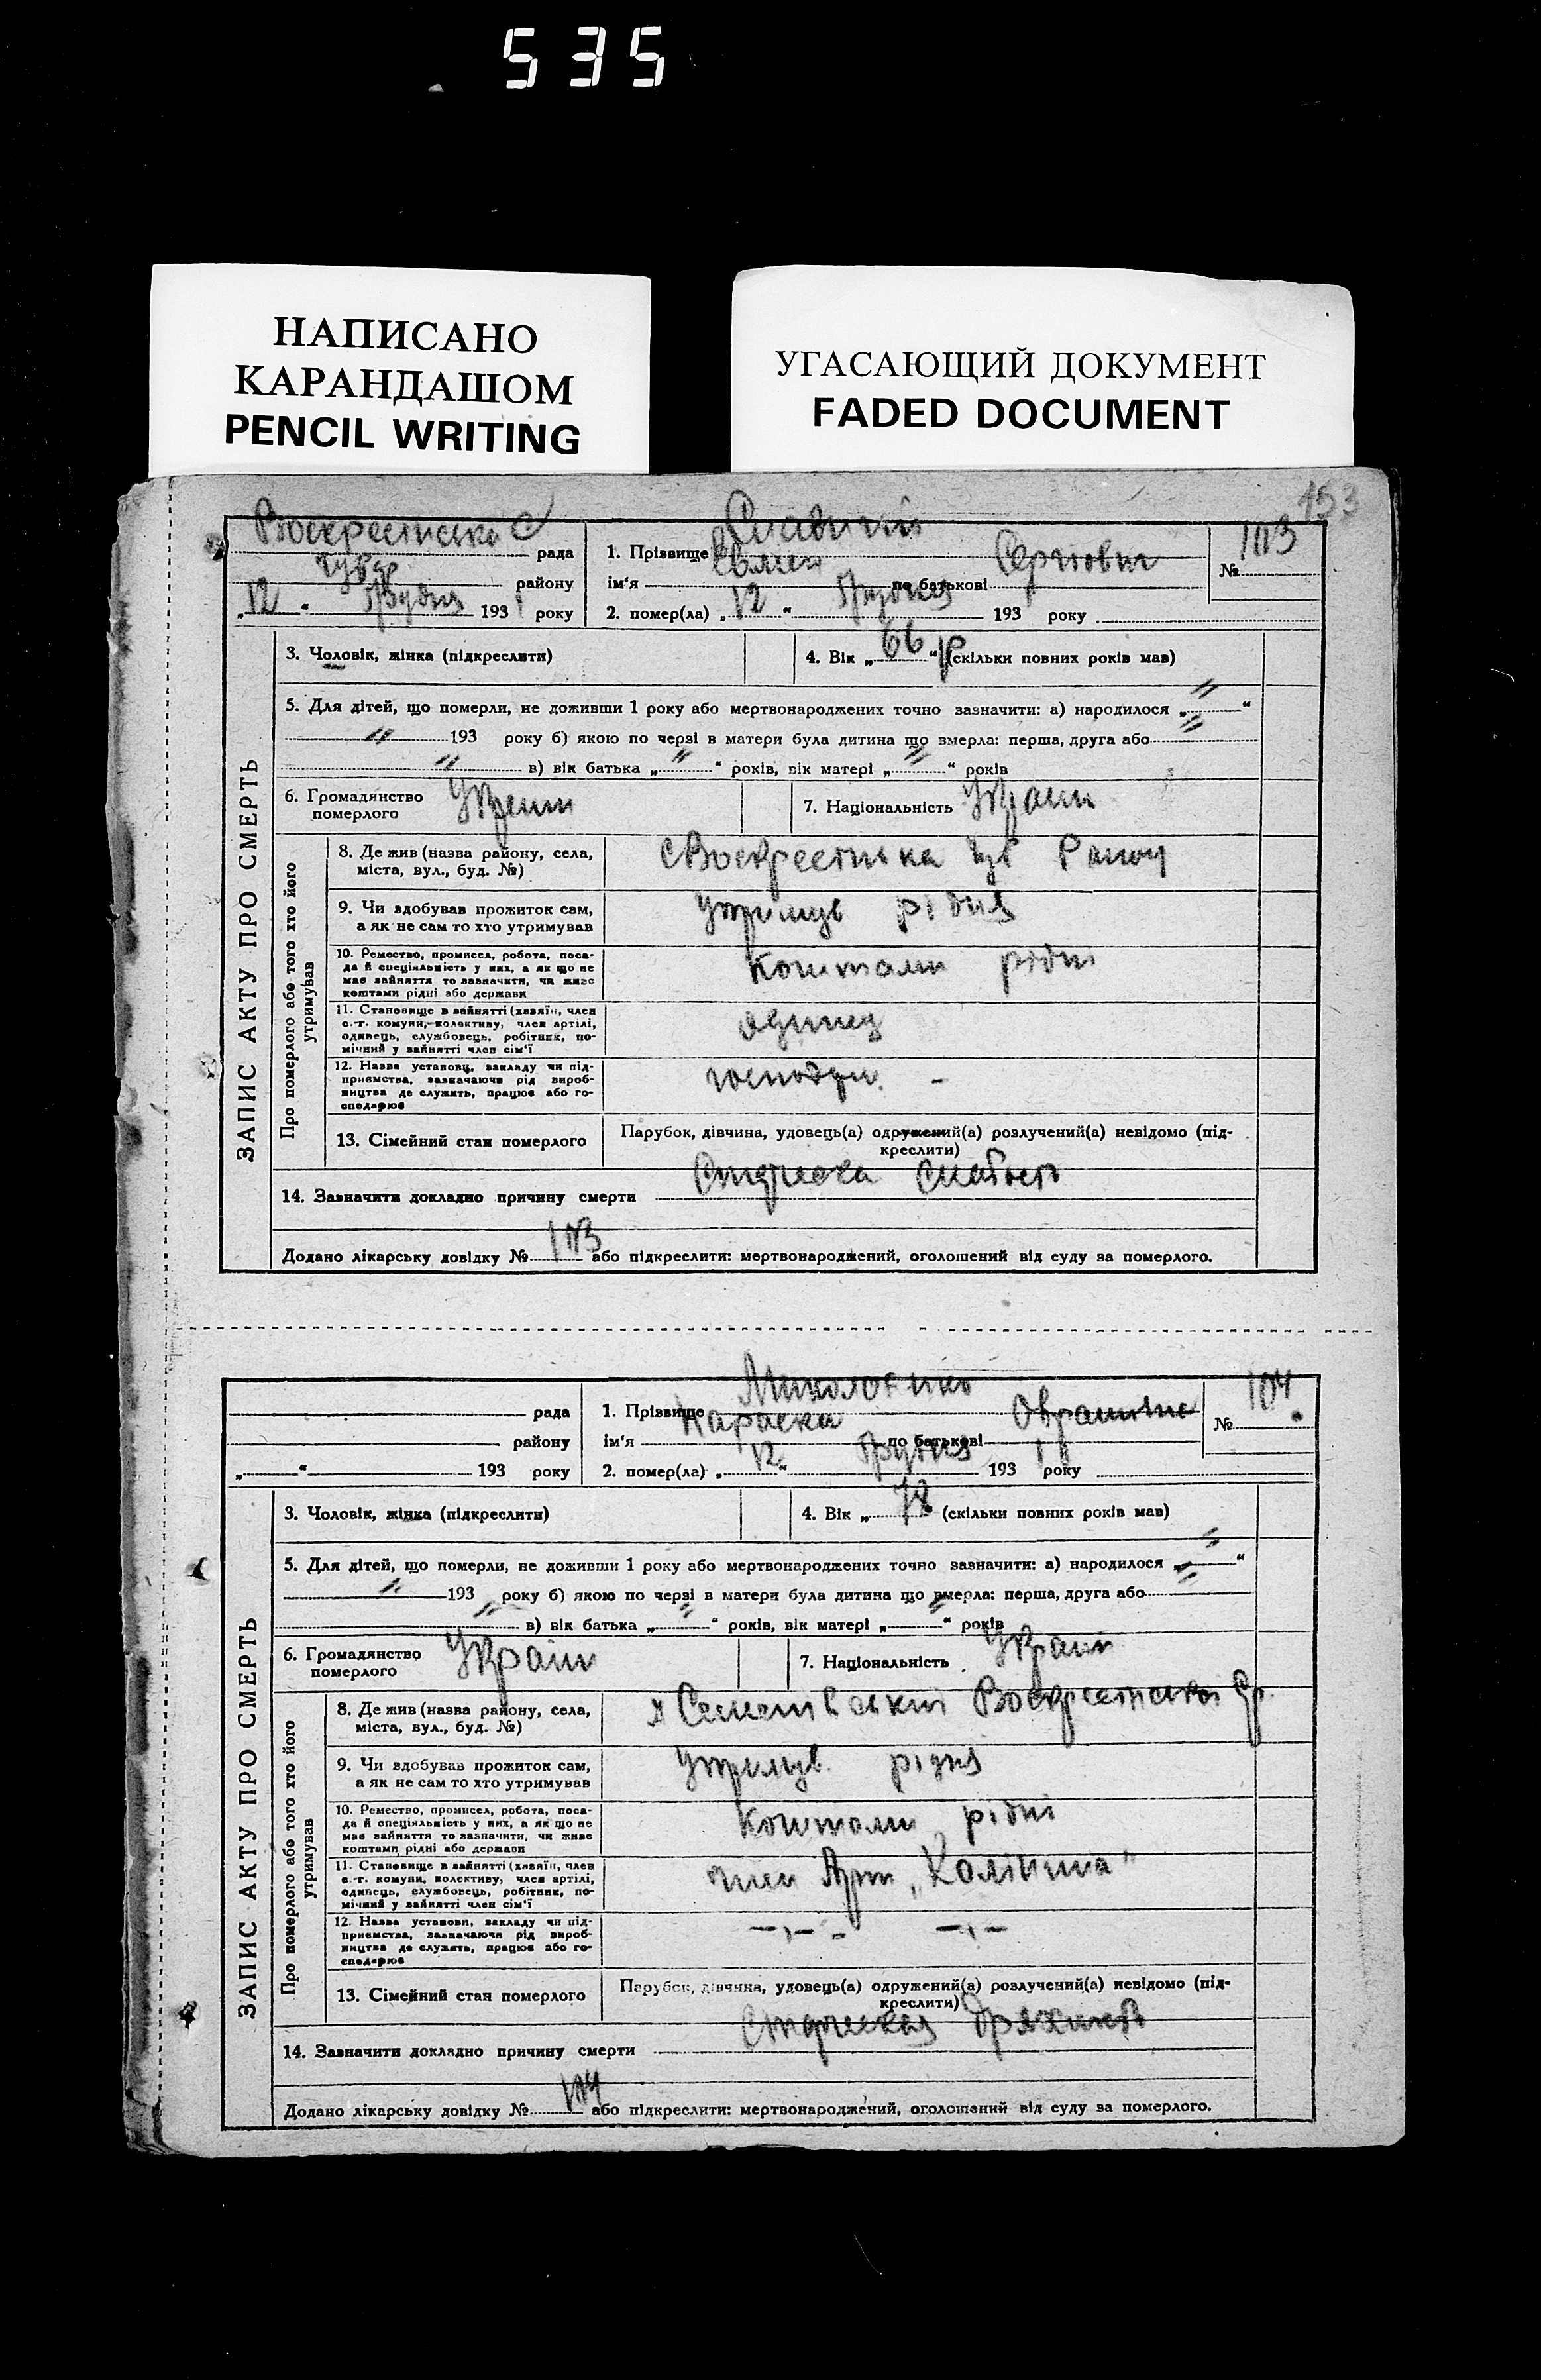 535
НАПИСАНО
КАРАНДАШОМ
PENCIL WRITING
УГАСАЮЩИЙ ДОКУМЕНТ
FADED DOCUMENT
153
ЗАПИС АКТУ ПРО СМЕРТЬ
рада
району
„12“ Грудня 193 року
1. Прізвище
ім'я по батькові Сергіович
2. помер(ла) „12“ Грудня 193 року
№ 103
3. Чоловік, жінка (підкреслити)
4. Вік „66“ р (скільки повних років мав)
5. Для дітей, що померли, не доживши 1 року або мертвонароджених точно зазначити: а) народилося „〃“
〃 193 року б) якою по черзі в матери була дитина що вмерла: перша, друга або 〃
〃 в) вік батька „〃“ років, вік матері „〃“ років
6. Громадянство
померлого
7. Національність Україн
Про померлого або того хто його
утримував
8. Де жив (назва району, села,
міста, вул., буд. №)
9. Чи здобував прожиток сам,
а як не сам то хто утримував
утримув рідня
10. Ремество, промисел, робота, поса-
да й спеціяльність у них, а як що не
має зайняття то зазначити, чи живе
коштами рідні або держави
Коштами рідні
11. Становище в зайнятті (хазяїн, член
с.-г. комуни, колективу, член артілі,
одинець, службовець, робітник, по-
мічний у зайнятті член сім'ї
12. Назва установи, закладу чи під-
приємства, зазначаючи рід вироб-
ництва де служить, працює або го-
сподарює
13. Сімейний стан померлого
Парубок, дівчина, удовець(а) одружений(а) розлучений(а) невідомо (під-
креслити)
14. Зазначити докладно причину смерти
Додано лікарську довідку № 103 або підкреслити: мертвонароджений, оголошений від суду за померлого.
ЗАПИС АКТУ ПРО СМЕРТЬ
рада
району
„ “ 193 року
1. Прізвище
ім'я по батькові
2. помер(ла) „12“ Грудня 193 року
№ 104
3. Чоловік, жінка (підкреслити)
4. Вік „78“ (скільки повних років мав)
5. Для дітей, що померли, не доживши 1 року або мертвонароджених точно зазначити: а) народилося „〃“
〃 193 року б) якою по черзі в матери була дитина що вмерла: перша, друга або 〃
〃 в) вік батька „〃“ років, вік матері „〃“ років
6. Громадянство
померлого
Україн
7. Національність Україн
Про померлого або того хто його
утримував
8. Де жив (назва району, села,
міста, вул., буд. №)
9. Чи здобував прожиток сам,
а як не сам то хто утримував
утримув. рідня
10. Ремество, промисел, робота, поса-
да й спеціяльність у них, а як що не
має зайняття то зазначити, чи живе
коштами рідні або держави
Коштами рідні
11. Становище в зайнятті (хазяїн, член
с.-г. комуни, колективу, член артілі,
одинець, службовець, робітник, по-
мічний у зайнятті член сім'ї
член Арт „Калініна"
12. Назва установи, закладу чи під-
приємства, зазначаючи рід вироб-
ництва де служить, працює або го-
сподарює
13. Сімейний стан померлого
Парубок, дівчина, удовець(а) одружений(а) розлучений(а) невідомо (під-
креслити)
14. Зазначити докладно причину смерти
Додано лікарську довідку № 104 або підкреслити: мертвонароджений, оголошений від суду за померлого.